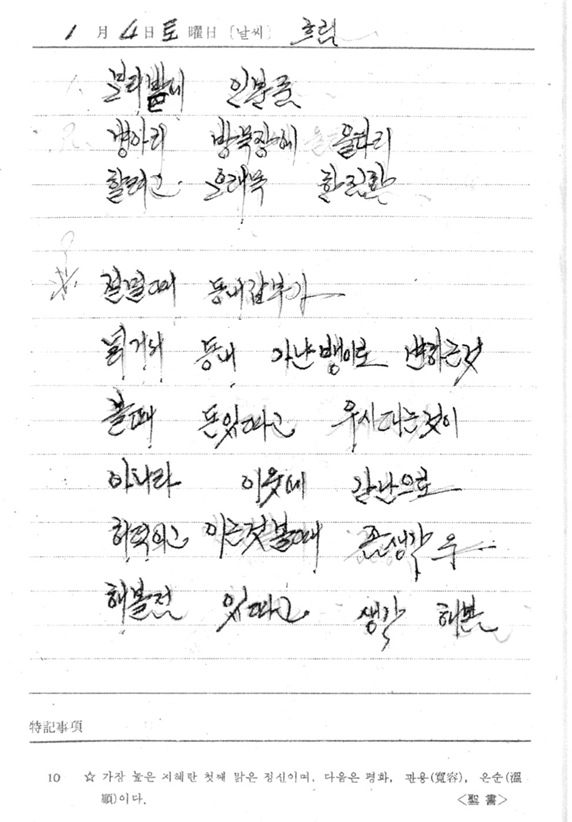 1 月 4 日 토 曜日 〔날씨〕 흐림
1. 보리밭에 인분줌
2. 병아리 방목장에 울타리
할려고 모래목 한리함
젊멀때 동내갑부가
늙거니 동내 가난뱅이로 변하는것
볼때 돈있따고 우시대는것이
아니라 이웃에 갇난으로
허덕이고 이는것볼때 존생각 우
해볼전 있따고 생각 해본
特記事項
10 ☆ 가장 높은 지혜란 첫째 맑은 정신이며, 다음은 평화, 관용(寬容), 온순(溫
順)이다. <聖書>